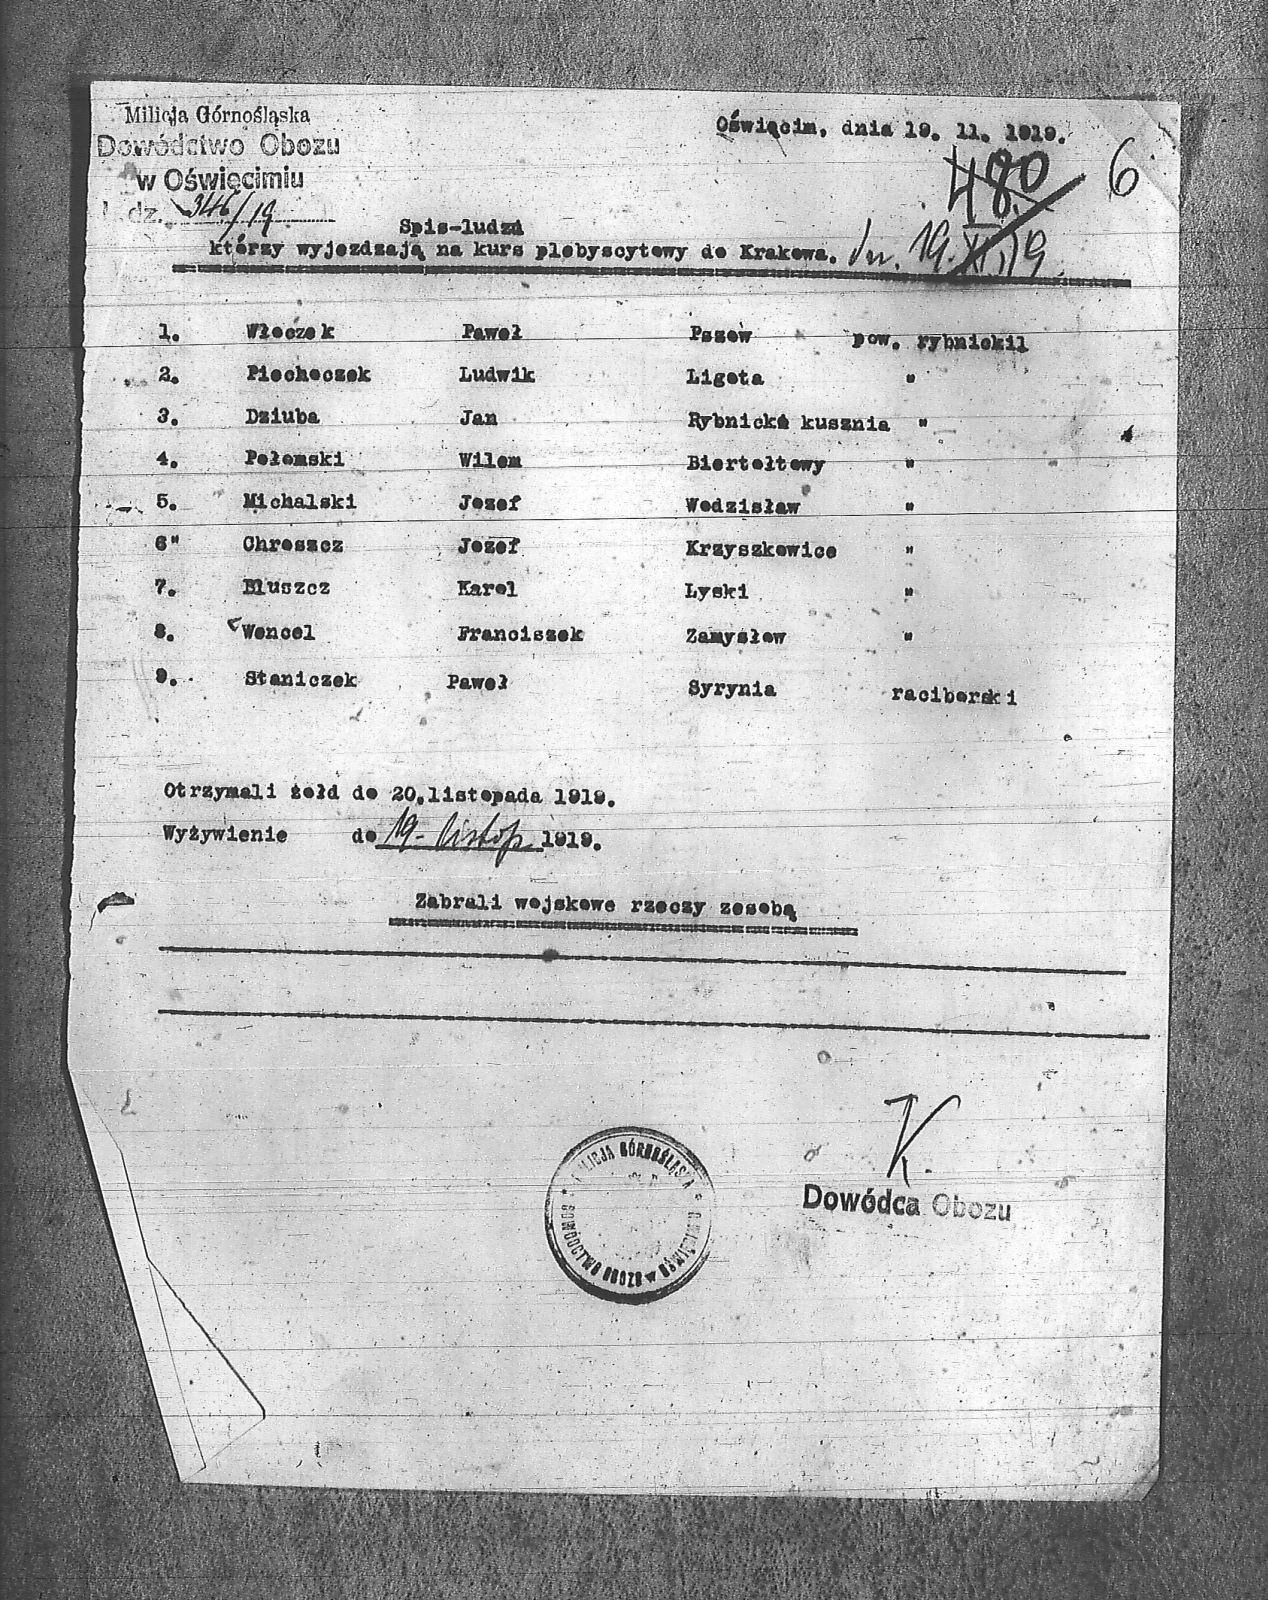 Milicja Górnośląska
Dowództwo Obozu
w Oświęcimiu
l. dz. 346/19
Oświęcim, dnia 19. 11. 1919.
480
6
Spis-ludzi
którzy wyjezdzają na kurs plebyscytowy do Krakowa. dn. 19.XI.19.
1. Włoczek Paweł Pszow pow. rybnickil
2. Piechoczek Ludwik Ligota "
3. Dziuba Jan Rybnicka kusznia "
4. Połomski Wilem Biertołtowy "
5. Michalski Jozef Wodzisław "
6" Chroszcz Jozef Krzyszkowice "
7. Bluszcz Karol Lyski "
8. Wencel Franciszek Zamysłow "
9. Staniczek Paweł Syrynia raciborski
Otrzymali żołd do 20.listopada 1919.
Wyżywienie do 19- listop. 1919.
Zabrali wojskowe rzeczy zesobą
K.
Dowódca Obozu
MILICJA GÓRNOŚLĄSKA
DOWÓDCTWO OBOZU w OŚWIĘCIMIU